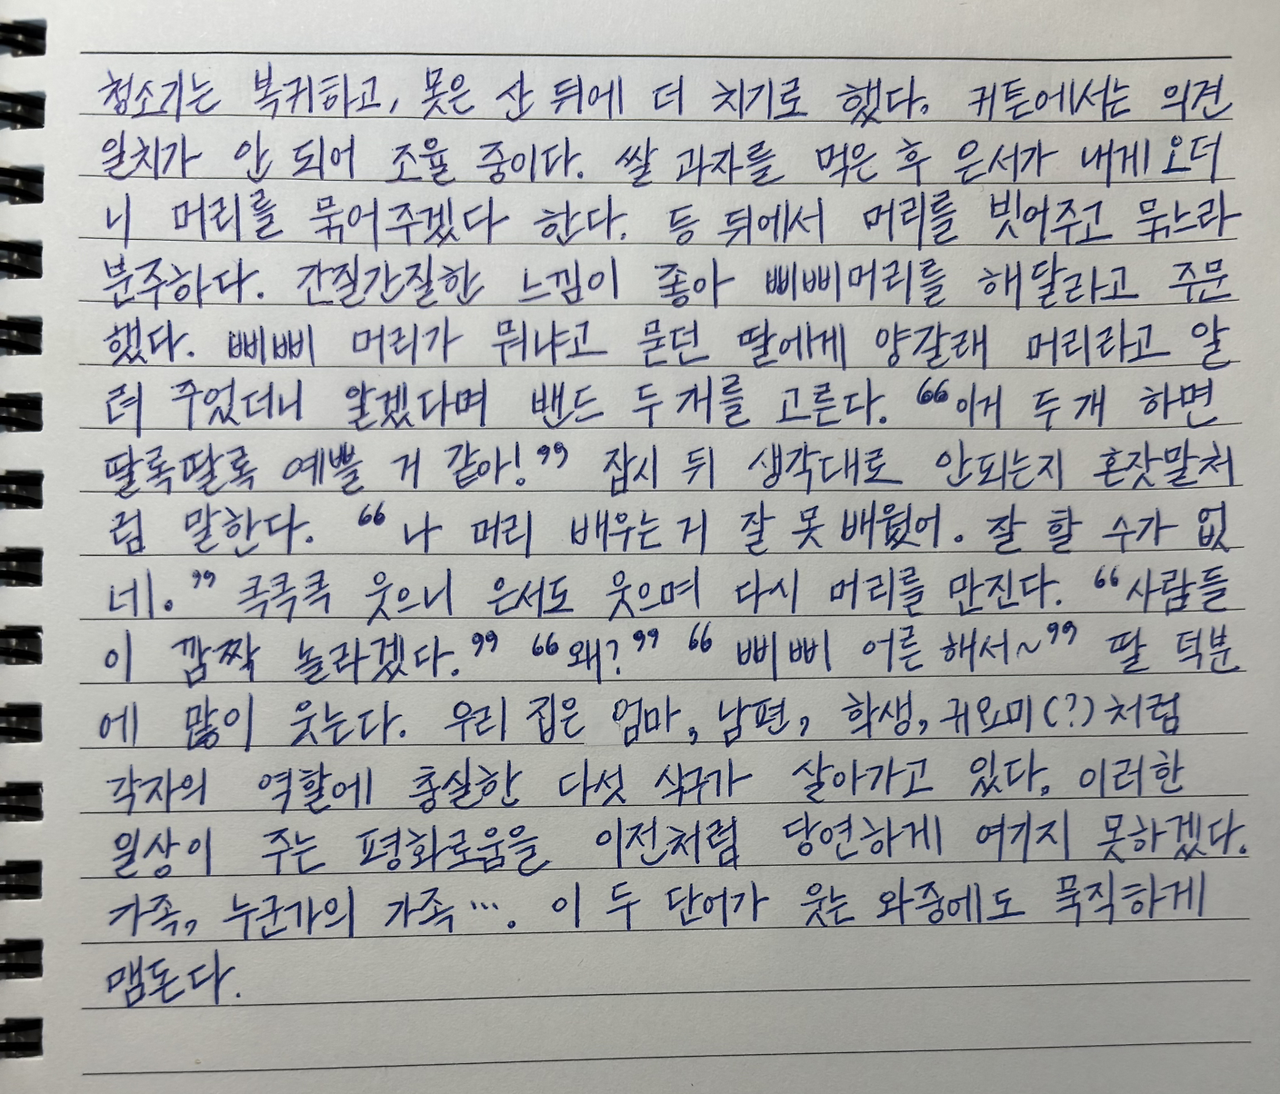 청소기는 복귀하고, 못은 산 뒤에 더 치기로 했다. 커튼에서는 의견
일치가 안 되어 조율 중이다. 쌀 과자를 먹은 후 은서가 내게 오더
니 머리를 묶어주겠다 한다. 등 뒤에서 머리를 빗어주고 묶느라
분주하다. 간질간질한 느낌이 좋아 삐삐머리를 해달라고 주문
했다. 삐삐 머리가 뭐냐고 묻던 딸에게 양갈래 머리라고 알
려 주었더니 알겠다며 밴드 두 개를 고른다. “이거 두 개 하면
딸록딸록 예쁠 거 같아!” 잠시 뒤 생각대로 안되는지 혼잣말처
럼 말한다. “나 머리 배우는 거 잘 못 배웠어. 잘 할 수가 없
네.” 큭큭큭 웃으니 은서도 웃으며 다시 머리를 만진다. “사람들
이 깜짝 놀라겠다.” “왜?” “삐삐 어른 해서~” 딸 덕분
에 많이 웃는다. 우리 집은 엄마, 남편, 학생, 귀요미(?)처럼
각자의 역할에 충실한 다섯 식구가 살아가고 있다. 이러한
일상이 주는 평화로움을 이전처럼 당연하게 여기지 못하겠다.
가족, 누군가의 가족…. 이 두 단어가 웃는 와중에도 묵직하게
맴돈다.